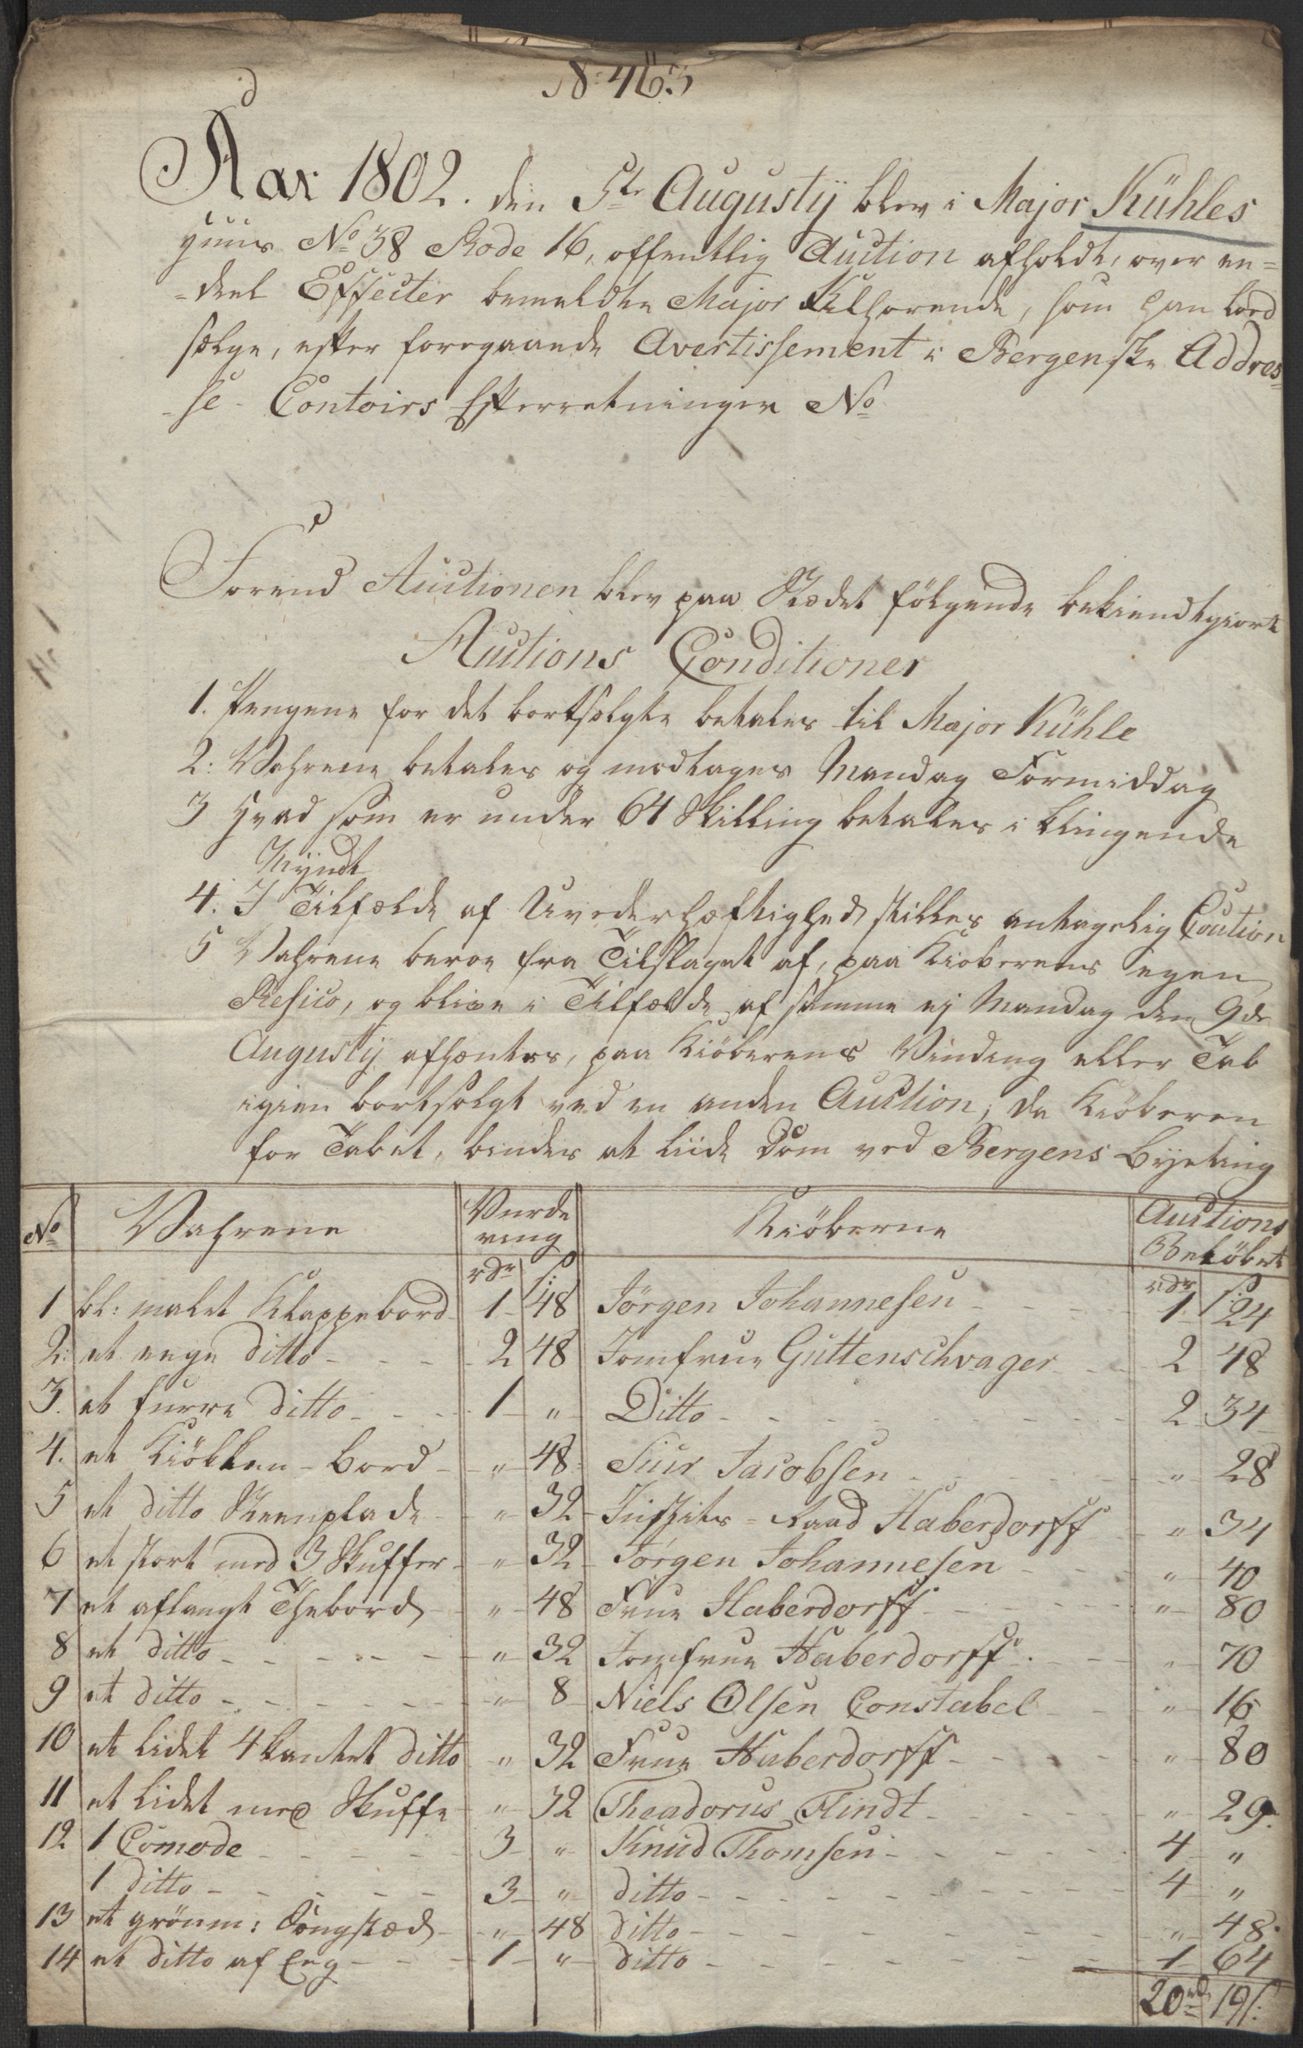 N: 463
Aar 1802. den 5te Augustÿ blev i Major Kühles
Huus No 38 Rode 16, offentlig Auction afholdt, over en=
=deel Effecter bemeldte Major tilhørende, som han lod
sælge, efter foregaaende Avertissement i Bergenske Addres=
=se Contoirs Efterretninger No
Forend Auctionen blev paa Stædet fölgende bekiendtgiort
Auctions Conditioner
1. Pengene for det bortsolgte betales til Major Kühle
2: Vahrene betales og modtages Mandag Formiddag
3 Hvad som er under 64 Skilling betales i klingende
Mÿndt
4. I Tilfælde af Uvederhæftighed stilles antagelig Coution
5 Vahrene beroe fra Tilslaget af, paa Kiöberens egen
Resico, og blive i Tilfælde af samme ej Mandag den 9de
Augustÿ afhæntes, paa Kiöberens Vinding eller Tab
igien bortsolgt ved en anden Auction, da Kiöberen
for Tabet, bindes at liide Dom ved Bergens Byeting
No Vahrene Vurdering Kiöberne Auctions Belöbet
rdr ß rdr ß
1 bl: malet Klappebord 1 48 Jørgen Johannesen 1 24
2: et ege ditto 2 48 Jomfrue Guttenschvager 2 48
3. et furre ditto 1 " Ditto 2 34
4. et Kiökken-bord " 48 Siur Jacobsen " 28
5 et ditto Steenplade " 32 Justits=Raad Haberdorff " 34
6 et stort med 3 Skuffer " 32 Jørgen Johannesen " 40
7 et aflangt Thebord " 48 Frue Haberdorff " 80
8 et ditto " 32 Jomfrue Haberdorff " 70
9 et ditto " 8 Niels Olsen Constabel " 16
10 et lidet 4kantet ditto " 32 Frue Haberdorff " 80
11 et lidet med Skuffe " 32 Theadorus Flindt " 29
12 1 Comode 3 " Knud Thomsen 4 "
1 ditto 3 " ditto 4 "
13 et grönm: Sengstæd " 48 ditto " 48
14 et ditto af Eeg 1 " ditto 1 64
20rd 19ß: